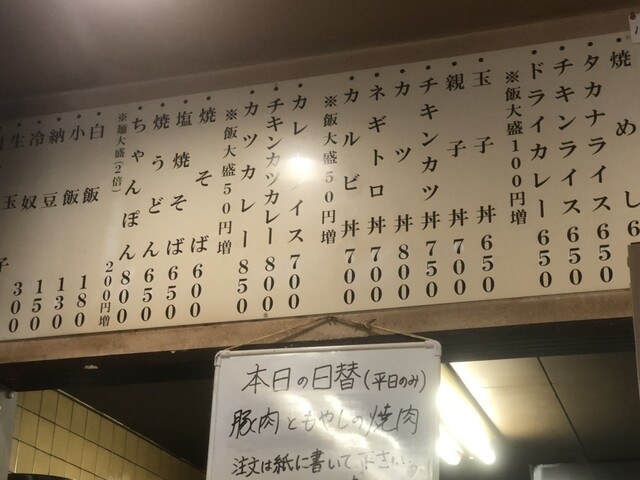 焼めし 6
タカナライス 650
チキンライス 650
ドライカレー 650
※飯大盛100円増
玉子丼 650
親子丼 700
チキンカツ丼 750
カツ丼 800
ネギトロ丼 700
カルビ丼 700
※飯大盛50円増
カレーライス 700
チキンカツカレー 800
カツカレー 850
※飯大盛50円増
焼そば 600
塩焼そば 650
焼うどん 650
ちゃんぽん 800
※麺大盛(2倍) 200円増
白飯 180
小飯 130
納豆 150
冷奴 300
生玉子
本日の日替(平日のみ)
豚肉ともやしの焼肉
注文は紙に書いて下さい。